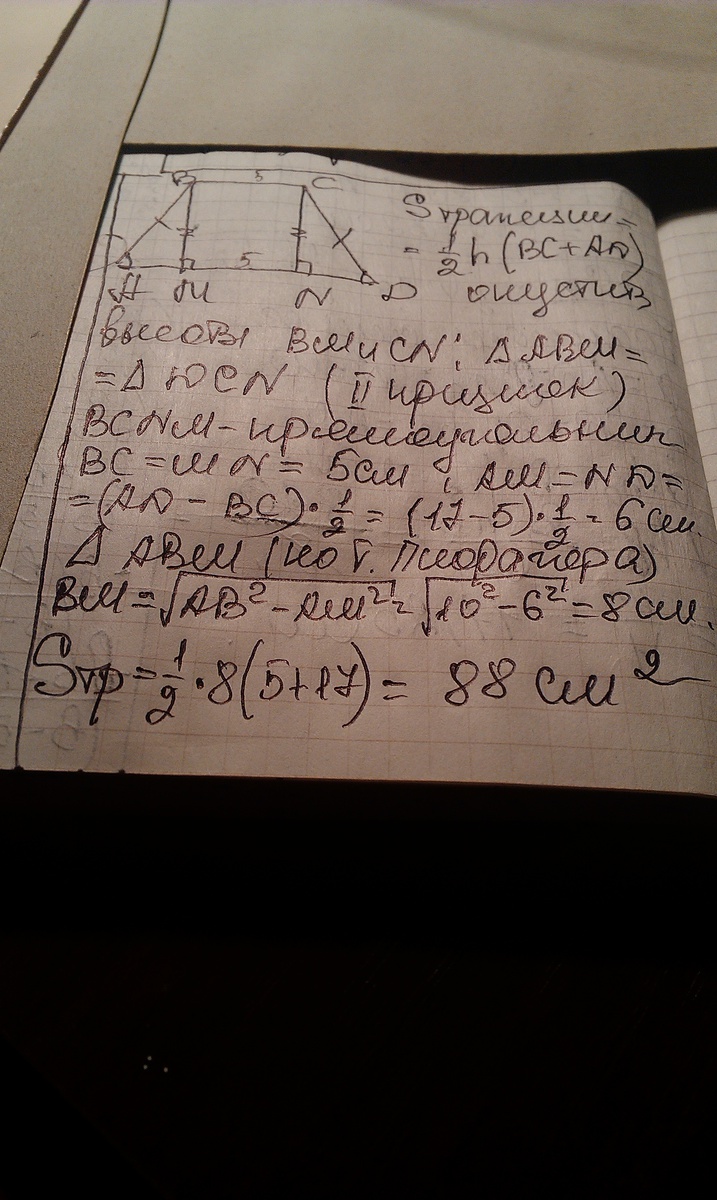 B 5 C
5
A M N D
Sтрапеции =
= 1/2 h (BC+AD)
опустив
высоты BM и CN; Δ ABM =
= Δ DCN (II признак)
BCNM - прямоугольник
BC = MN = 5 см; AM = ND =
= (AD - BC) · 1/2 = (17-5) · 1/2 = 6 см.
Δ ABM (по т. Пифагора)
BM = √AB² - AM² = √10² - 6² = 8 см.
Sтр = 1/2 · 8(5+17) = 88 см²